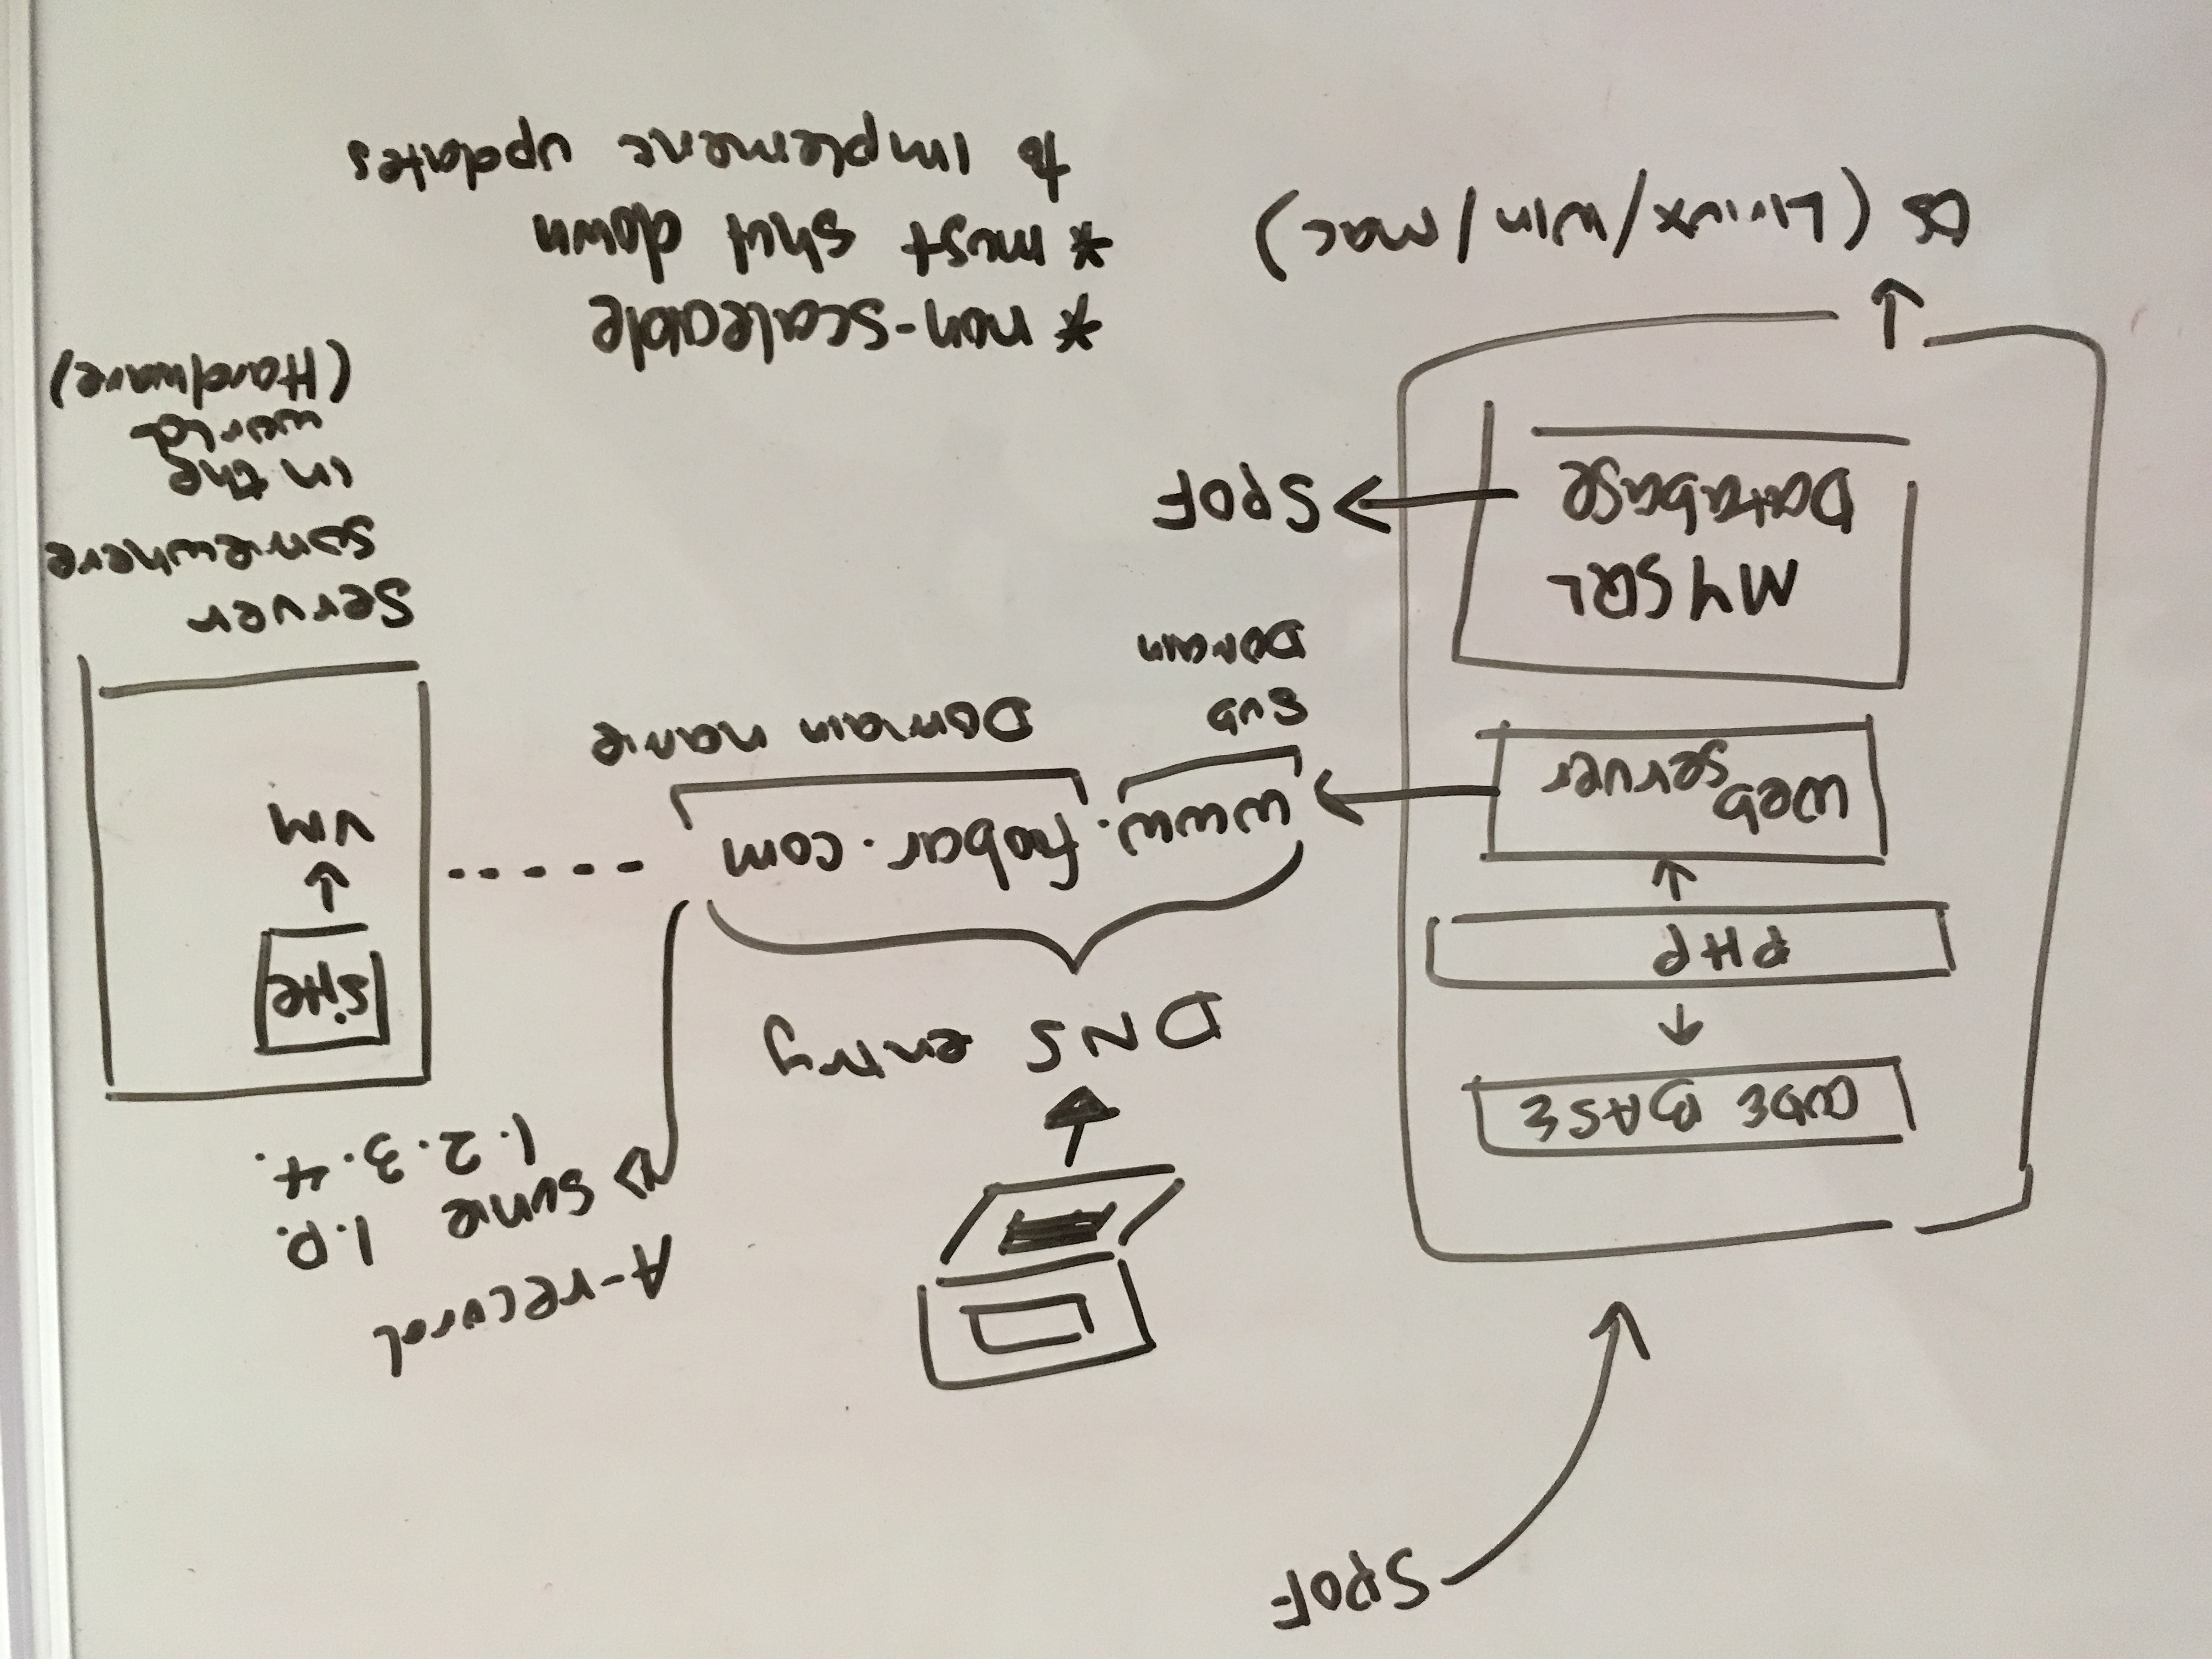 SPOF
CODE BASE
PHP
Web
server
MYSQL
Database
SPOF
OS (Linux/Win/mac)
DNS entry
www.foobar.com
Sub
Domain
Domain name
A-record
some I.P.
1.2.3.4.
Site
VM
Server
somewhere
in the
world
(Hardware)
* non-scaleable
* must shut down
to implement updates